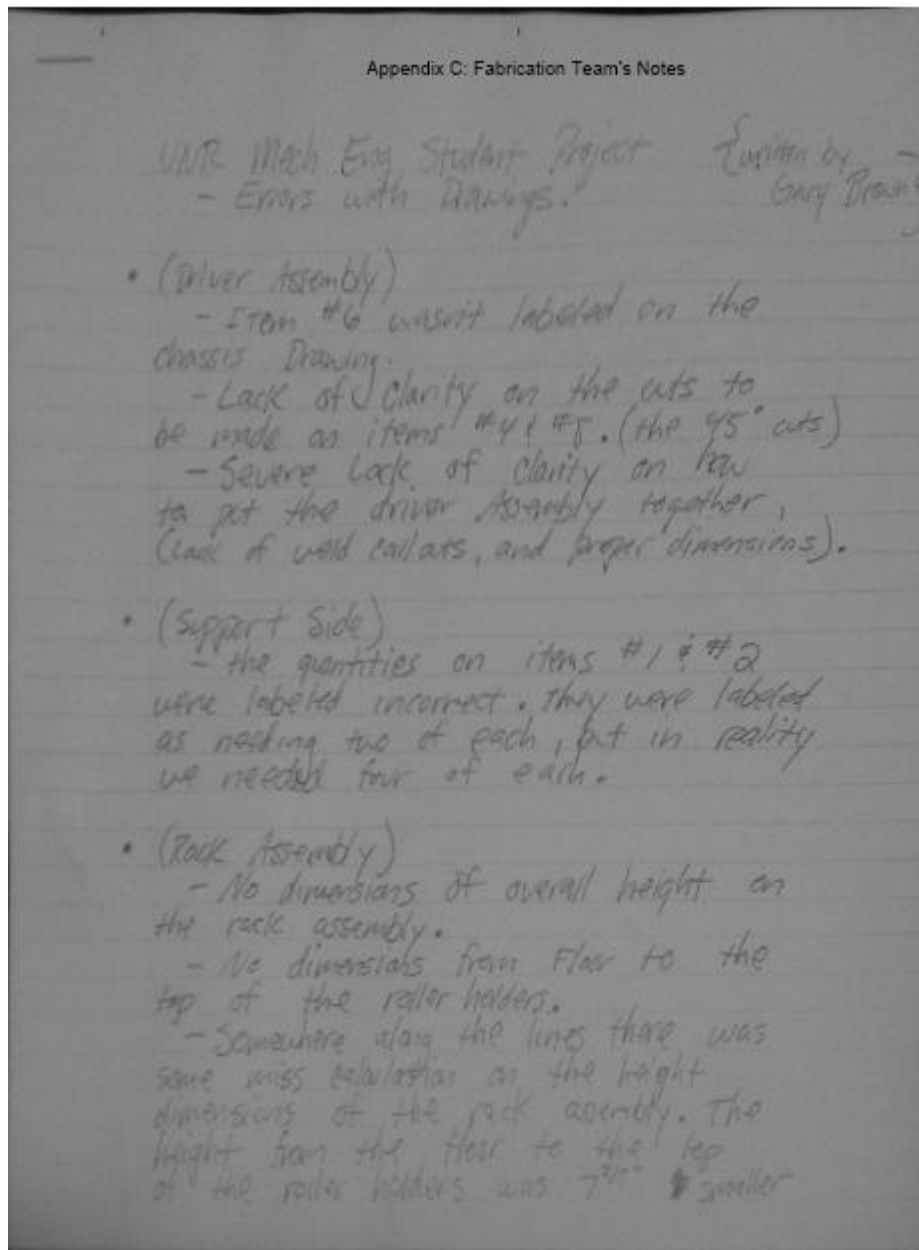 Appendix C: Fabrication Team's Notes
UNR Mech Eng Student Project {written by
- Errors with Drawings. Gary Brown}
• (Driver Assembly)
- Item #6 wasn't labeled on the
chassis Drawing.
- Lack of Clarity on the cuts to
be made on items #4 & (the 45° cuts)
- Severe Lack of clarity on how
to put the driver Assembly together,
(Lack of weld callouts, and proper dimensions).
• (Support Side)
- the quantities on items #1 & #2
were labeled incorrect. They were labeled
as needing two of each, but in reality
we needed four of each.
• (Rack Assembly)
- No dimensions of overall height on
the rack assembly.
- No dimensions from Floor to the
top of the roller holders.
- Somewhere along the lines there was
some miss calculation on the height
dimensions of the rack assembly. The
height from the floor to the top
of the roller holders was smaller